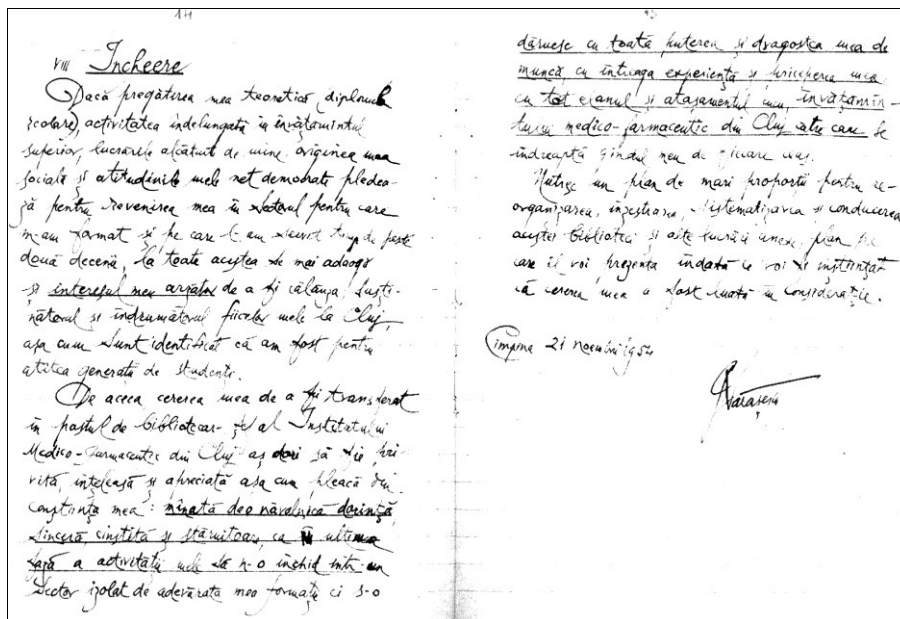 14
VIII Încheere
Dacă pregătirea mea teoretică (diplomele
școlare), activitatea îndelungată în învățamîntul
superior, lucrările alcătuit de mine, originea mea
socială și atitudinile mele net democrate pledea-
ză pentru revenirea mea în sectorul pentru care
m-am format și pe care l-am servit timp de peste
două decenii, la toate acestea se mai adaogă
și interesul meu arzător de a fi călăuza, susți-
nătorul și îndrumătorul fiicelor mele la Cluj,
așa cum sunt identificat că am fost pentru
atîtea generații de studenți.
De aceea cererea mea de a fi transferat
în postul de bibliotecar-șef al Institutului
Medico-farmaceutic din Cluj aș dori să fie pri-
vită, înțeleasă și apreciată așa cum pleacă din
conștiința mea: mînată de o năvalnică dorință,
sinceră, cinstită și stăruitoare, ca în ultima
fază a activității mele să n-o închid într-un
sector izolat de adevărata mea formație ci s-o
dăruesc cu toată puterea și dragostea mea de
muncă, cu întreaga experiență și priceperea mea
cu tot elanul și atașamentul meu, învățamîn-
tului medico-farmaceutic din Cluj către care se
îndreaptă gîndul meu de fiecare ceas.
Nutresc un plan de mari proporții pentru re-
organizarea, înzestrarea, sistematizarea și conducerea
acestei biblioteci și alte lucrări anexe, plan pe
care îl voi prezenta îndată ce voi fi înștiințat
că cererea mea a fost luată în considerație.
Cîmpina 21 noembrie 1954